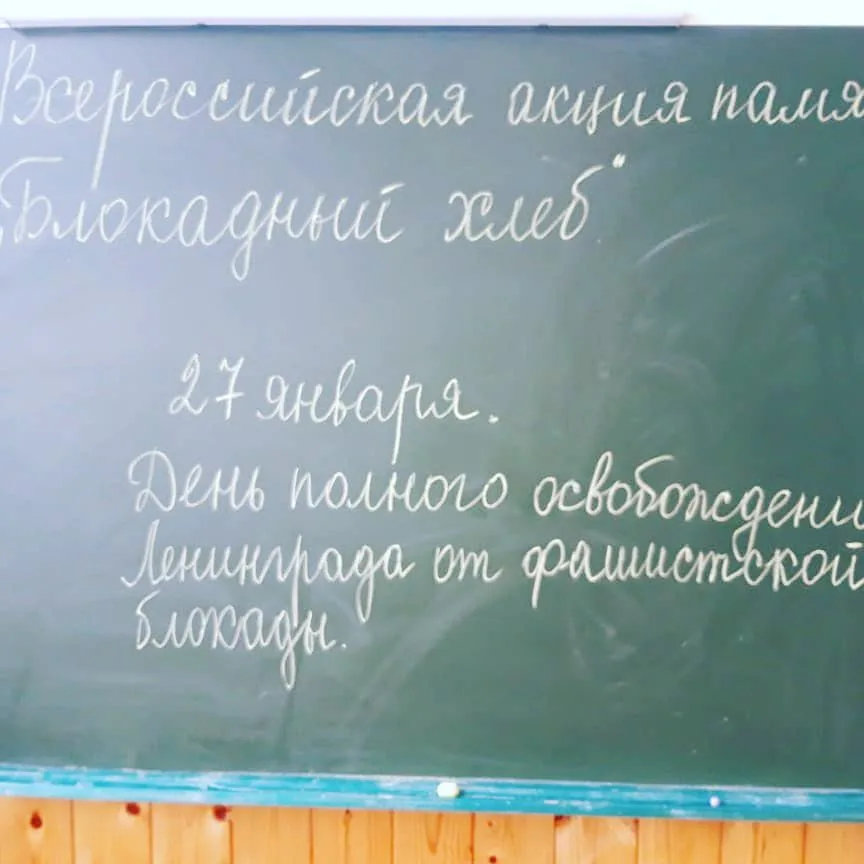 Всероссийская акция памя
„Блокадный хлеб"
27 января.
День полного освобождени
Ленинграда от фашистской
блокады.